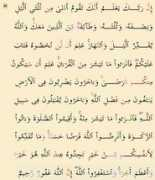 إِنَّ رَبَّكَ يَعْلَمُ أَنَّكَ تَقُومُ أَدْنَىٰ مِن ثُلُثَيِ ٱلَّيْلِ
وَنِصْفَهُۥ وَثُلُثَهُۥ وَطَآئِفَةٌ مِّنَ ٱلَّذِينَ مَعَكَ وَٱللَّهُ
يُقَدِّرُ ٱلَّيْلَ وَٱلنَّهَارَ عَلِمَ أَن لَّن تُحْصُوهُ فَتَابَ
عَلَيْكُمْ فَٱقْرَءُوا۟ مَا تَيَسَّرَ مِنَ ٱلْقُرْءَانِ عَلِمَ أَن سَيَكُونُ
مِنكُم مَّرْضَىٰ وَءَاخَرُونَ يَضْرِبُونَ فِى ٱلْأَرْضِ
يَبْتَغُونَ مِن فَضْلِ ٱللَّهِ وَءَاخَرُونَ يُقَٰتِلُونَ فِى سَبِيلِ
ٱللَّهِ فَٱقْرَءُوا۟ مَا تَيَسَّرَ مِنْهُ وَأَقِيمُوا۟ ٱلصَّلَوٰةَ وَءَاتُوا۟
ٱلزَّكَوٰةَ وَأَقْرِضُوا۟ ٱللَّهَ قَرْضًا حَسَنًا وَمَا تُقَدِّمُوا۟
لِأَنفُسِكُم مِّنْ خَيْرٍ تَجِدُوهُ عِندَ ٱللَّهِ هُوَ خَيْرًا
وَأَعْظَمَ أَجْرًا وَٱسْتَغْفِرُوا۟ ٱللَّهَ إِنَّ ٱللَّهَ غَفُورٌ رَّحِيمٌ